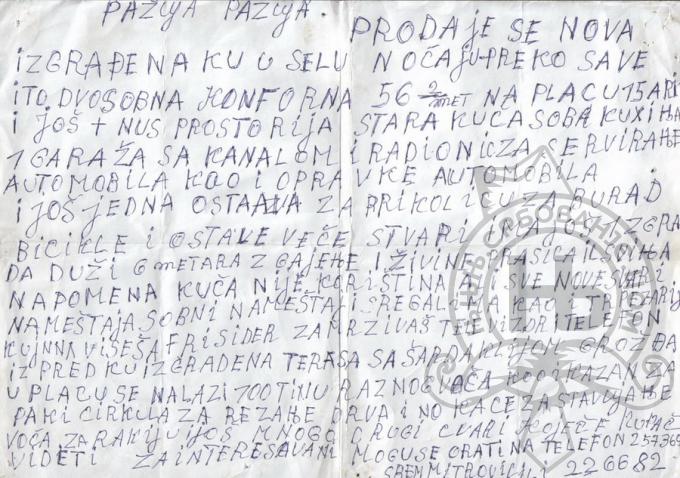 PAŽЊA PAŽЊA. PRODAJE SE NOVA
IZGRAĐENA KU U SELU NOČAJU PREKO SAVE
ITO DVOSOBNA KONFORNA 56 2/met NA PLACU 15 ARI
I JOŠ + NUS PROSTORIJA STARA KUĆA SOBA KUXIЊA
1 GARAŽA SA KANALOM I RADIONICZA SERVIRAЊE
AUTOMOBILA KAO I OPRAVKE AUTOMOBILA
I JOŠ JEDNA OSTAAVA ZA PRIKOLICU ZA BURAD
BICIKLE I OSTALE VEĆE STVARI IMA JOŠ IZGRA
DA DUŽI 6 METARA ZGAJEЊE I ŽIVINE PRASICA I SVIЊA
NAPOMENA KUČA NIJE KORIŠTINA I SVE NOVE STVARI
NAMEŠTAJA SOBNI NAMEŠTAJ SREGALIMA KAO I TRPEZARIJ
KUJNNA VISEŠA FRISIDER ZAMRZIVAŠ TELEVIZOR I TELEFON
IZ PRED KU IZGRADENA TERASA SA ŠARDAKLIJOM GROZĐA
U PLACU SE NALAZI 700 TINU RAZNOG VOČA KOMI KAZAN ZA
PAKI CIRKULA ZA REZAЊE DRVA I NO KACE ZA STAVLJAЊE
VOĆA ZA RAKIJU JOŠ MNOGO DRUGI CVARI KOJE ĆE KUPAČ
VIDETI ZAINTERESOVANI MOGU SE OBRATI NA TELEFON 257369
SREM MITROVICI 226682
СРБОВАЊЕ
Њ